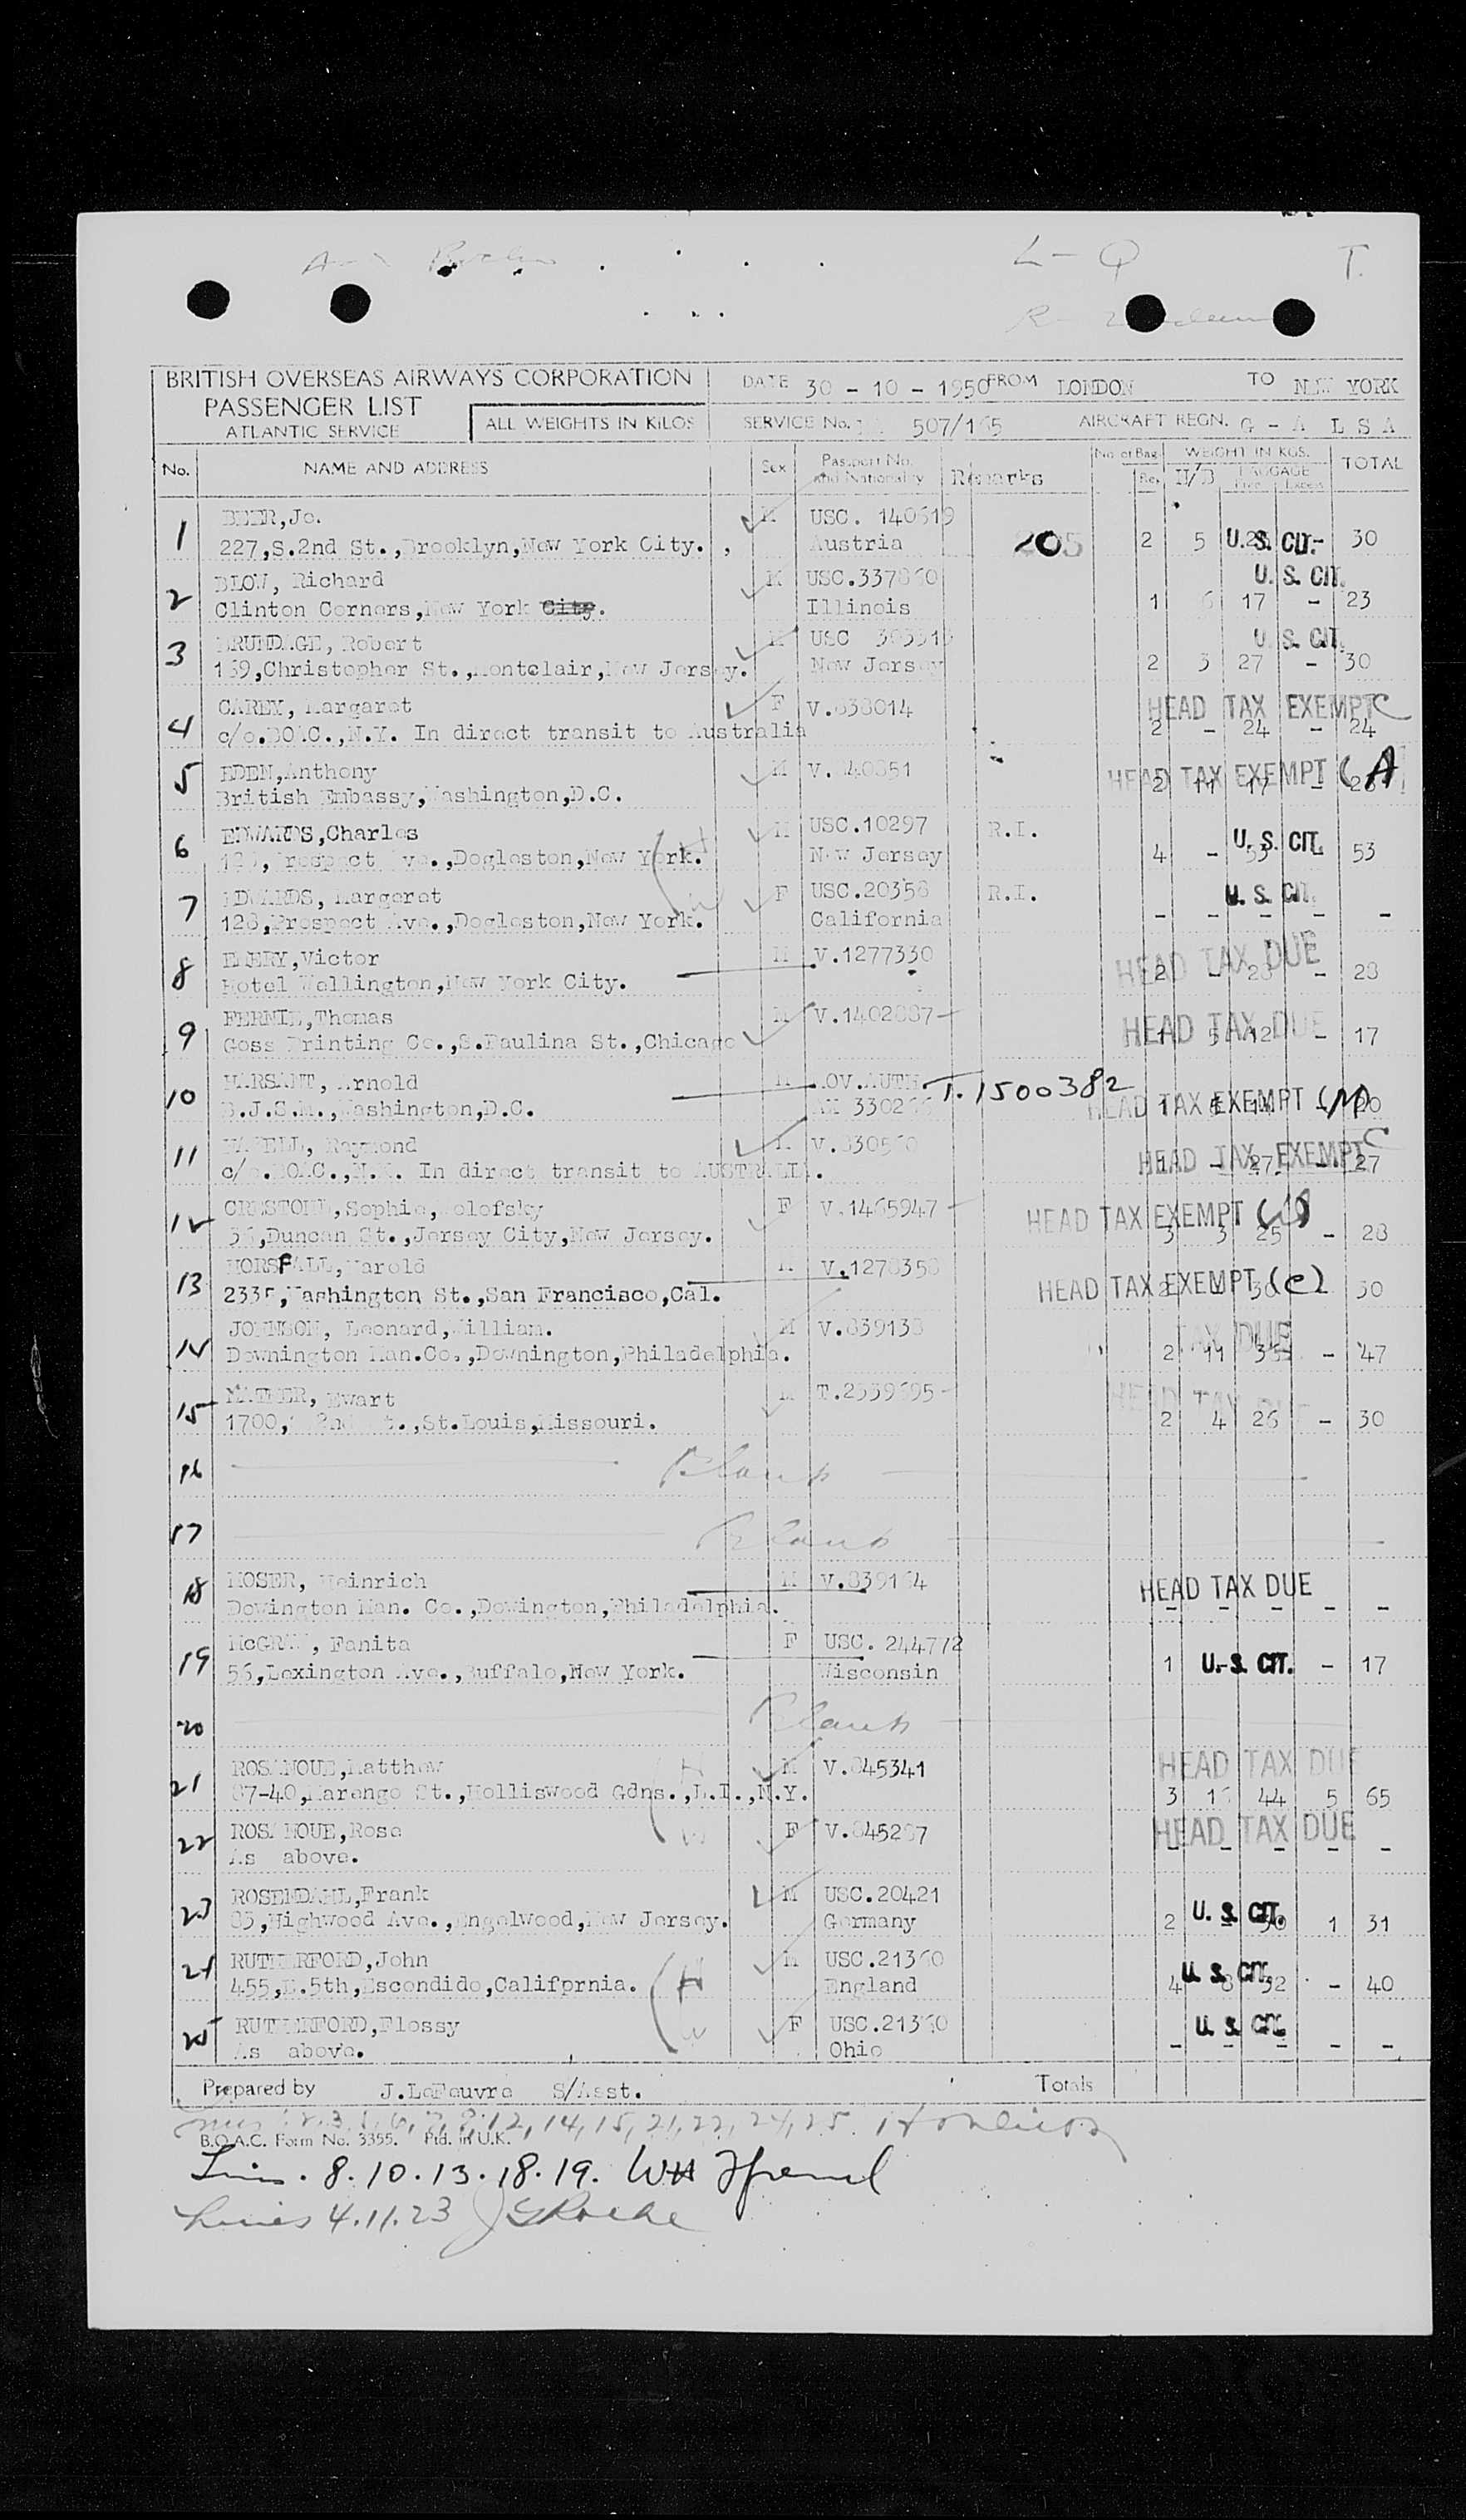 L - Q T.
BRITISH OVERSEAS AIRWAYS CORPORATION
PASSENGER LIST
ATLANTIC SERVICE
ALL WEIGHTS IN KILOS
DATE 30 - 10 - 1950 FROM LONDON TO NEW YORK
SERVICE No. 507/165 AIRCRAFT REGN. G - A L S A
No. NAME AND ADDRESS Sex Passport No. and Nationality Remarks No. of Bag. Rev. WEIGHT IN KGS. H/B LUGGAGE Free Excess TOTAL
1 BEER,Jo. M USC. 140619 2 5 U.S. CIT. - 30
227,S.2nd St.,Brooklyn,New York City. , Austria 205
2 BLOW, Richard M USC.337860 U. S. CIT.
Clinton Corners,New York City. Illinois 1 6 17 - 23
3 BRUNDAGE, Robert M USC U. S. CIT.
159,Christopher St.,Montclair,New Jersey. New Jersey 2 3 27 - 30
4 CAREY, Margaret F V.838014 HEAD TAX EXEMPT C
c/o.BOAC.,N.Y. In direct transit to Australia 2 - 24 - 24
5 EDEN,Anthony M V. 40851 HEAD TAX EXEMPT (A)
British Embassy,Washington,D.C. 2 11 17 - 28
6 EDWARDS,Charles (H M USC.10297 R.I. U. S. CIT.
128,Prospect Ave.,Dogleston,New York. New Jersey 4 - 53 - 53
7 EDWARDS, Margaret W F USC.20358 R.I. U. S. CIT.
128,Prospect Ave.,Dogleston,New York. California - - - - -
8 EMERY,Victor M V.1277330 HEAD TAX DUE
Hotel Wellington,New York City. 2 - 28 - 28
9 FERNIE,Thomas M V.1402887- HEAD TAX DUE
Goss Printing Co.,S.Paulina St.,Chicago 1 5 12 - 17
10 MARSANT, Arnold M MOV.AUTH. T.1500382
B.J.S.M.,Washington,D.C. HEAD TAX EXEMPT (M) 20
11 Raymond M V.830560
c/o.BOAC.,N.Y. In direct transit to AUSTRALIA. HEAD TAX EXEMPT C 1 - 27 - 27
12 CRESTOHL,Sophie,Wolofsky F V.1465947- HEAD TAX EXEMPT
36,Duncan St.,Jersey City,New Jersey. 3 3 25 - 28
13 HORSFALL,Harold M V.1278358
2335,Washington St.,San Francisco,Cal. HEAD TAX EXEMPT (C)
14 JOHNSON, Leonard,William. M V.839138 TAX DUE
Downington Man.Co.,Downington,Philadelphia. 2 11 36 - 47
15 MATHER, Ewart M T.2539695- HEAD TAX DUE
1700, 2nd St.,St.Louis,Missouri. 2 4 26 - 30
16 Blank
17 Blank
18 MOSER, Heinrich M V.839164 HEAD TAX DUE
Dowington Man. Co.,Dowington,Philadelphia. - - - - -
19 McGRAW, Fanita F USC. 244772
56,Lexington Ave.,Buffalo,New York. Wisconsin 1 U.S. CIT. - 17
20 Blank
21 ROSANOUE,Matthew (H M V.845341 HEAD TAX DUE
87-40,Marengo St.,Holliswood Gdns.,L.I.,N.Y. 3 16 44 5 65
22 ROSANOUE,Rose W F V.845287 HEAD TAX DUE
As above. - - - - -
23 ROSENDAHL,Frank M USC.20421
83,Highwood Ave.,Engelwood,New Jersey. Germany 2 U. S. CIT. 1 31
24 RUTHERFORD,John (H M USC.21360 U. S. CIT.
455,E.5th,Escondido,California. England 4 8 32 - 40
25 RUTHERFORD,Flossy W F USC.21360 U. S. CIT.
As above. Ohio - - - - -
Prepared by J.LeFeuvre S/Asst. Totals
12, 14, 15, 21, 22, 24, 25.
B.O.A.C. Form No. 3355. Ptd. in U.K.
Lines. 8. 10. 13. 18. 19. WH
Lines 4. 11. 23